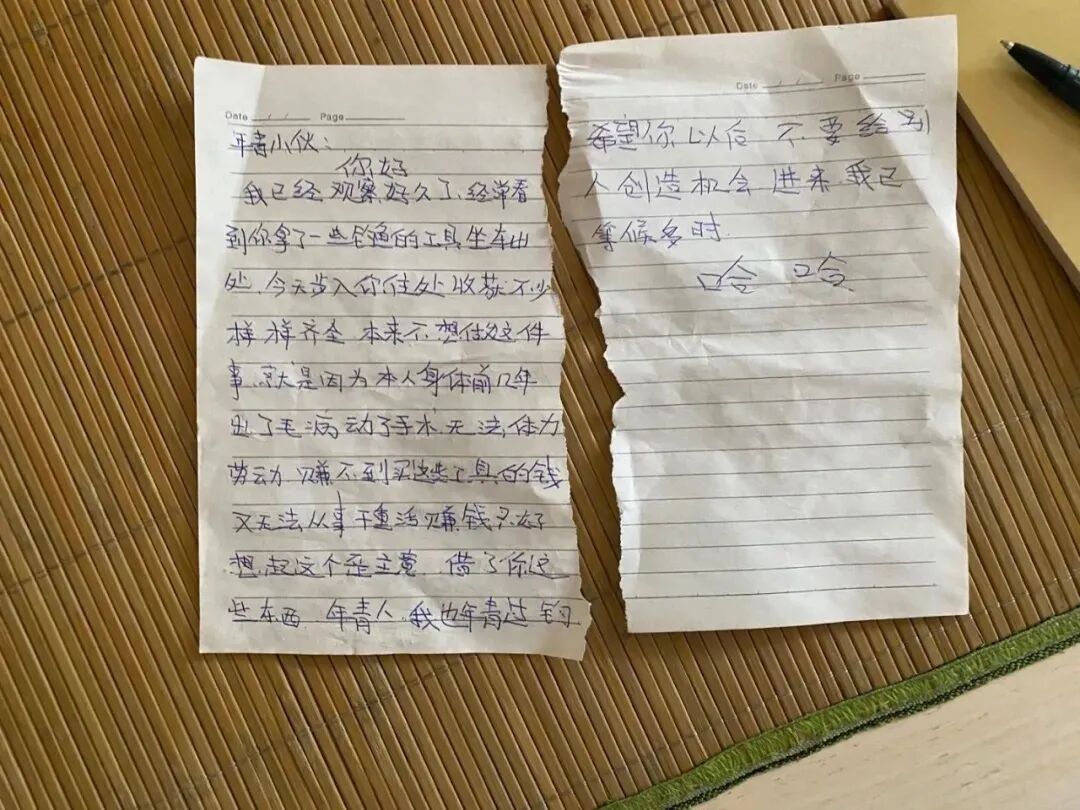 Date / / Page
年青小伙：
你好
我已经观察好久了、经常看
到你拿了一些钓鱼的工具坐车出
处、今天步入你住处收获不少
样样齐全 本来不想做这件
事、就是因为本人身体前几年
出了毛病动了手术无法体力
劳动 赚不到买这些工具的钱
又无法从事干重活赚钱只好
想起这个歪主意 借了你这
些东西 年青人、我也年青过
Date / / Page
希望你以后 不要给别
人创造机会 进来、我已
等候多时
哈哈